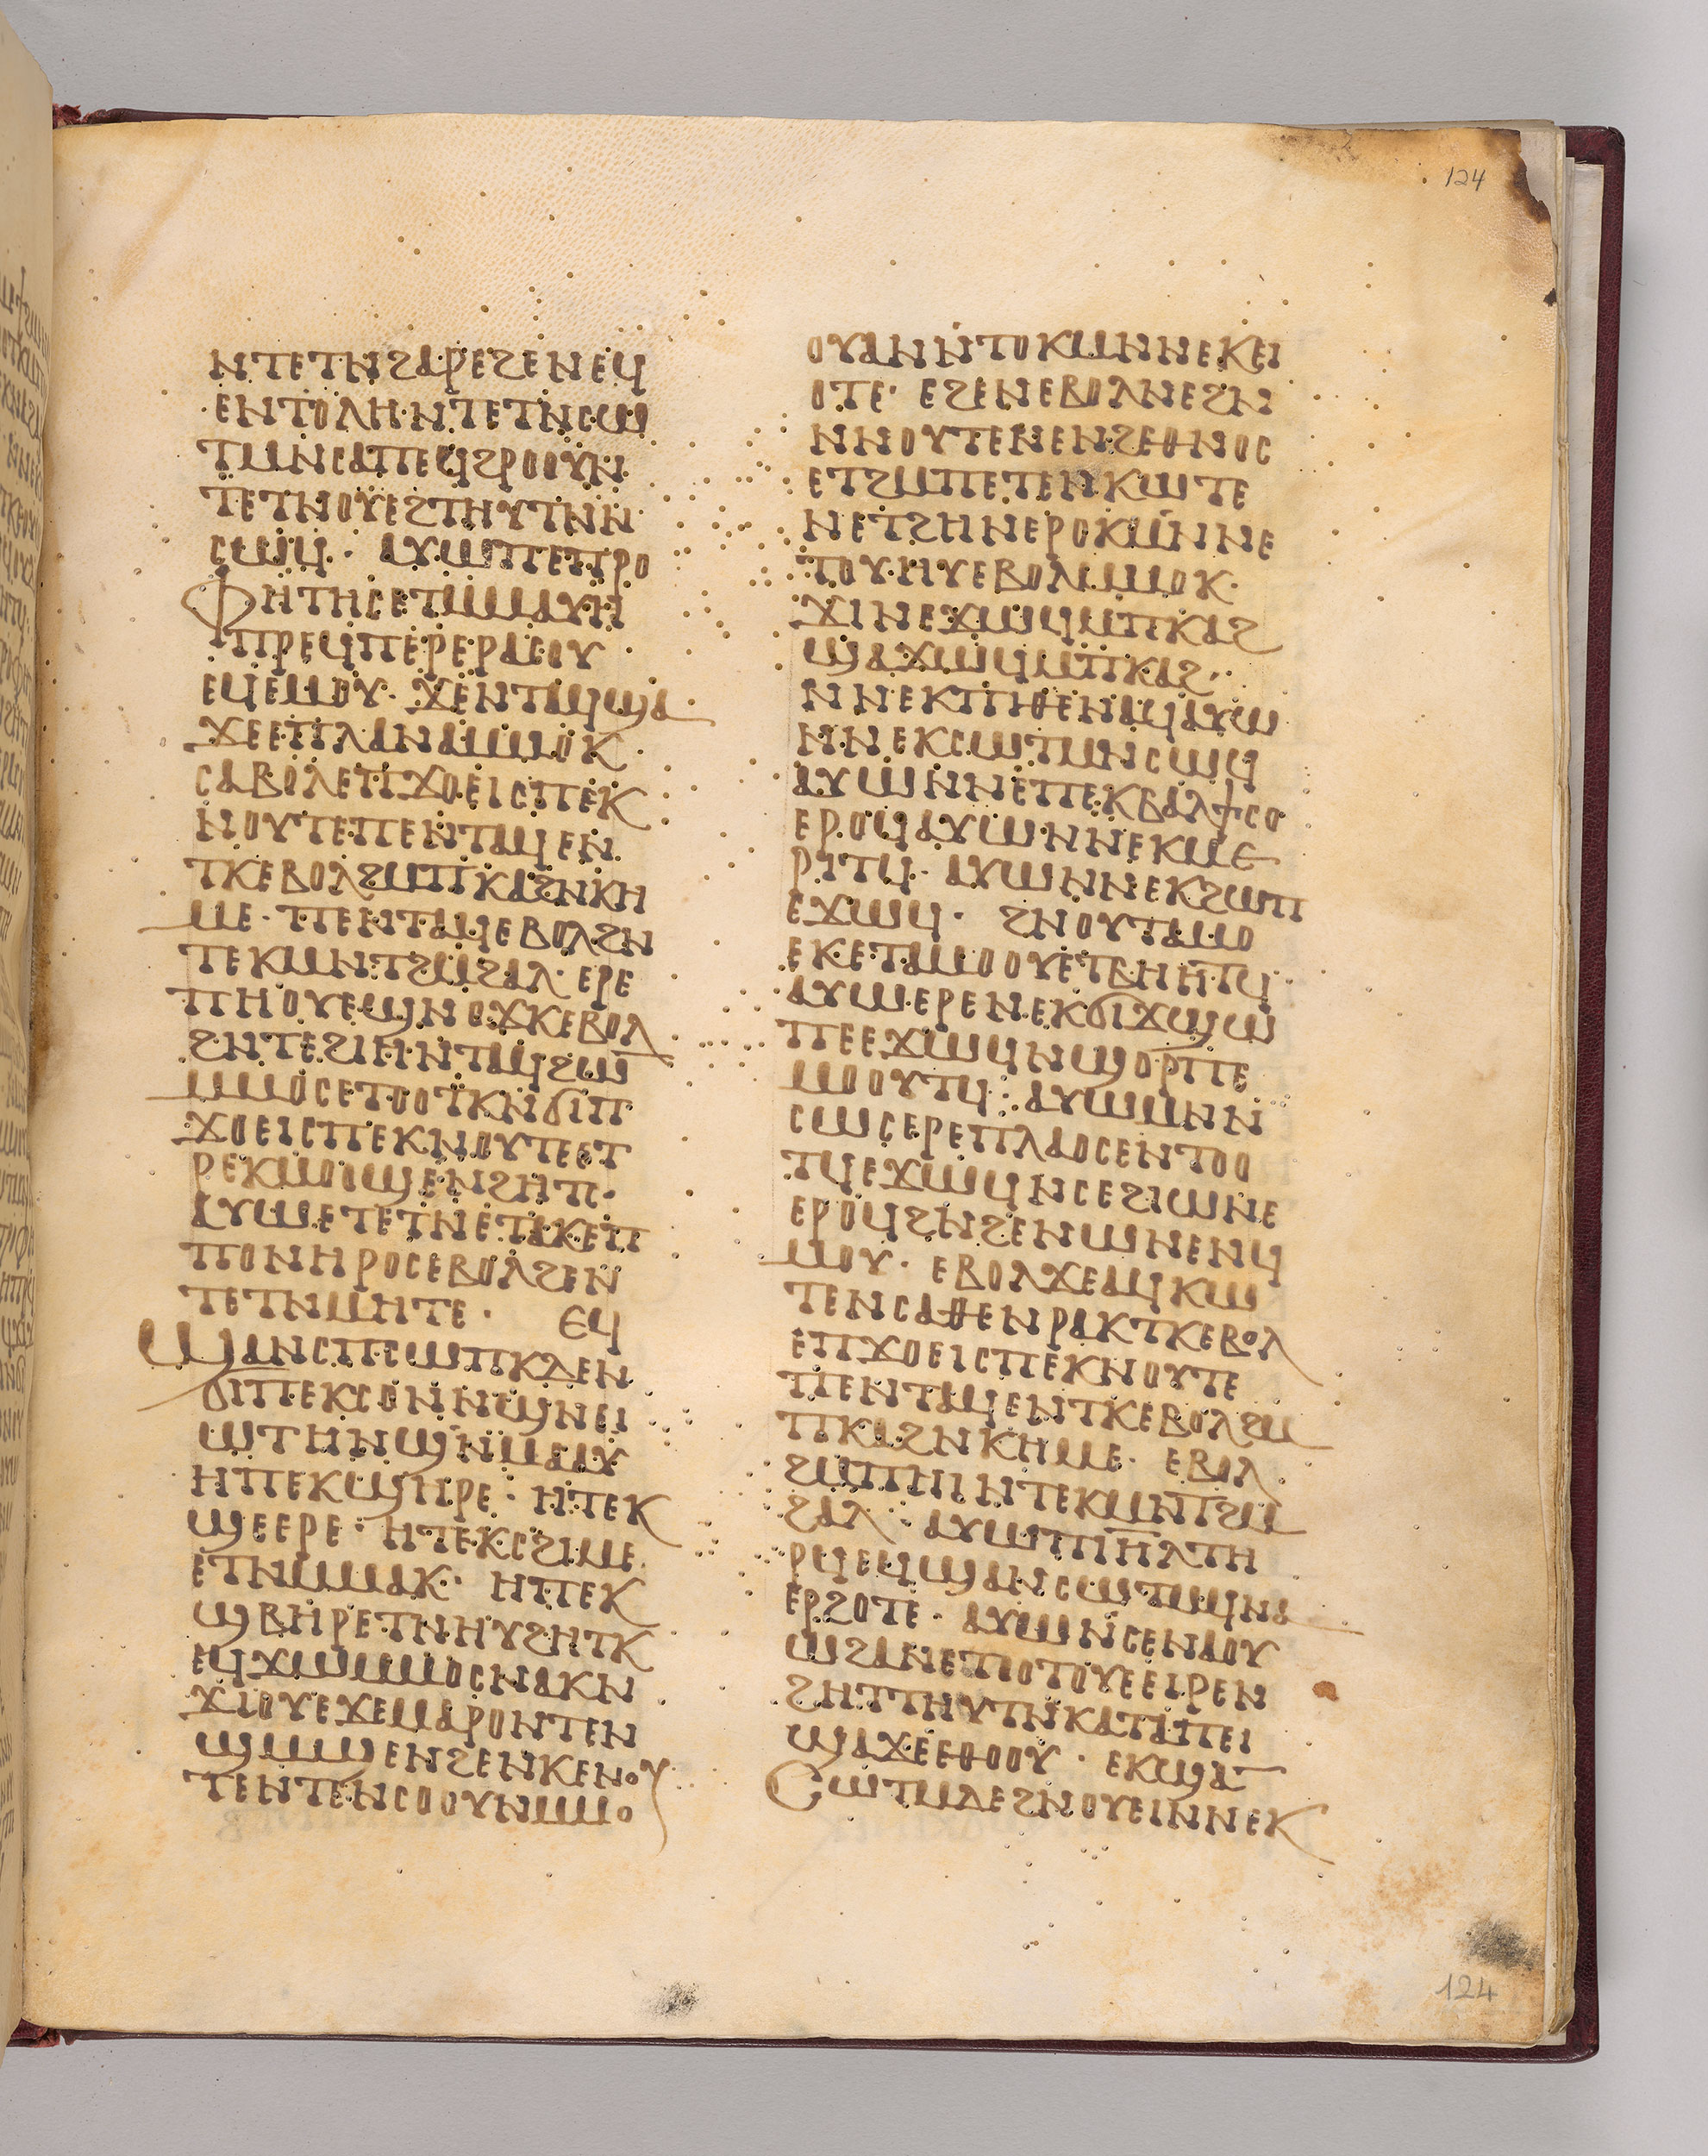 124
ⲛⲧⲉⲧⲛϩⲁⲣⲉϩⲉⲛⲉϥ
ⲉⲛⲧⲟⲗⲏⲛⲧⲉⲧⲛⲥⲱ
ⲧⲙⲛⲥⲁⲡⲉϥϩⲣⲟⲟⲩⲛ
ⲧⲉⲧⲛⲟⲩⲉϩⲧⲏⲩⲧⲛⲛ
ⲥⲱϥ· ⲁⲩⲱⲡⲉⲡⲣⲟ
ⲫⲏⲧⲏⲥⲉⲧⲙⲙⲁⲩⲏ
ⲡⲣⲉϥⲡⲉⲣⲉⲣⲁⲥⲟⲩ
ⲉϥⲉⲙⲟⲩ· ϫⲉⲛⲧⲁϥϣⲁ
ϫⲉⲉⲡⲗⲁⲛⲁⲙⲙⲟⲕ
ⲥⲁⲃⲟⲗⲉⲡϫⲟⲉⲓⲥⲡⲉⲕ
ⲛⲟⲩⲧⲉⲡⲉⲛⲧⲁϥⲉⲛ
ⲧⲕⲉⲃⲟⲗϩⲙⲡⲕⲁϩⲛⲕⲏ
ⲙⲉ· ⲡⲉⲛⲧⲁϥⲉⲃⲟⲗϩⲛ
ⲧⲉⲕⲙⲛⲧϩⲙϩⲁⲗ· ⲉⲣⲉ
ⲡⲏⲟⲩⲉϣⲛⲟϫⲕⲉⲃⲟⲗ
ϩⲛⲧⲉϩⲓⲏⲛⲧⲁϥϩⲱ
ⲙⲙⲟⲥⲉⲧⲟⲟⲧⲕⲛϭⲓⲡ
ϫⲟⲉⲓⲥⲡⲉⲕⲛⲟⲩⲧⲉⲉⲧ
ⲣⲉⲕⲙⲟⲟϣⲉⲛϩⲏⲧⲥ·
ⲁⲩⲱⲉⲧⲉⲧⲛⲉⲧⲁⲕⲉⲡ
ⲡⲟⲛⲏⲣⲟⲥⲉⲃⲟⲗϩⲉⲛ
ⲧⲉⲧⲛⲙⲏⲧⲉ· ⲉϥ
ϣⲁⲛⲥⲡⲥⲱⲡⲕⲇⲉⲛ
ϭⲓⲡⲉⲕⲥⲟⲛⲛϣⲛⲉⲓ
ⲱⲧⲏⲛϣⲛⲙⲁⲁⲩ
ⲏⲡⲉⲕϣⲏⲣⲉ· ⲏⲧⲉⲕ
ϣⲉⲉⲣⲉ· ⲏⲧⲉⲕⲥϩⲓⲙⲉ
ⲉⲧⲛⲙⲙⲁⲕ· ⲏⲡⲉⲕ
ϣⲃⲏⲣⲉⲧⲛⲏⲩϩⲏⲧⲕ
ⲉϥϫⲱⲙⲙⲟⲥⲛⲁⲕⲛ
ϫⲓⲟⲩⲉϫⲉⲙⲁⲣⲟⲛⲧⲉⲛ
ϣⲙϣⲉⲛϩⲉⲛⲕⲉⲛⲟⲩ
ⲧⲉⲛⲧⲉⲛⲥⲟⲟⲩⲛⲙⲙⲟ
ⲟⲩⲁⲛⲛⲧⲟⲕⲙⲛⲛⲉⲕⲉⲓ
ⲟⲧⲉ· ⲉϩⲉⲛⲉⲃⲟⲗⲛⲉϩⲛ
ⲛⲛⲟⲩⲧⲉⲛⲉⲛϩⲉⲑⲛⲟⲥ
ⲉⲧϩⲙⲡⲉⲧⲉⲛⲕⲱⲧⲉ
ⲛⲉⲧϩⲏⲛⲉⲣⲟⲕⲙⲛⲛⲉ
ⲧⲟⲩⲏⲩⲉⲃⲟⲗⲙⲙⲟⲕ·
ϫⲓⲛⲉϫⲱϥⲙⲡⲕⲁϩ
ϣⲁϫⲱϥⲙⲡⲕⲁϩ··
ⲛⲛⲉⲕⲡⲓⲑⲉⲛⲁϥⲁⲩⲱ
ⲛⲛⲉⲕⲥⲱⲧⲙⲛⲥⲱϥ
ⲁⲩⲱⲛⲛⲉⲡⲉⲕⲃⲁⲗϯⲥⲟ
ⲉⲣⲟϥⲁⲩⲱⲛⲛⲉⲕⲙⲉ
ⲣⲓⲧϥ· ⲁⲩⲱⲛⲛⲉⲕϩⲱⲡ
ⲉϫⲱϥ· ϩⲛⲟⲩⲧⲁⲙⲟ
ⲉⲕⲉⲧⲁⲙⲟⲟⲩⲉⲧⲃⲏⲏⲧϥ
ⲁⲩⲱⲉⲣⲉⲛⲉⲕϭⲓϫϣⲱ
ⲡⲉⲉϫⲱϥⲛϣⲟⲣⲡⲉ
ⲙⲟⲟⲩⲧϥ: ⲁⲩⲱⲙⲛⲛ
ⲥⲱⲥⲉⲣⲉⲡⲗⲁⲟⲥⲉⲛⲧⲟⲟ
ⲧϥⲉϫⲱϥⲛⲥⲉϩⲓⲱⲛⲉ
ⲉⲣⲟϥϩⲛϩⲉⲛⲱⲛⲉⲛϥ
ⲙⲟⲩ· ⲉⲃⲟⲗϫⲉⲁϥⲕⲱ
ⲧⲉⲛⲥⲁⲑⲉⲛⲣⲁⲕⲧⲕⲉⲃⲟⲗ
ⲉⲡϫⲟⲉⲓⲥⲡⲉⲕⲛⲟⲩⲧⲉ
ⲡⲉⲛⲧⲁϥⲉⲛⲧⲕⲉⲃⲟⲗϩⲙ
ⲡⲕⲁϩⲛⲕⲏⲙⲉ· ⲉⲃⲟⲗ
ϩⲙⲡⲏⲓⲛⲧⲉⲕⲙⲛⲧϩⲙ
ϩⲁⲗ: ⲁⲩⲱⲡⲓⲏⲗⲧⲏ
ⲣϥⲉϥϣⲁⲛⲥⲱⲧⲙϥⲛⲁ
ⲉⲣϩⲟⲧⲉ· ⲁⲩⲱⲛⲥⲉⲛⲁⲟⲩ
ⲱϩⲁⲛⲉⲧⲟⲧⲟⲩⲉⲉⲓⲣⲉⲛ
ϩⲏⲧⲧⲏⲩⲧⲛⲕⲁⲧⲁⲡⲉⲓ
ϣⲁϫⲉⲉⲑⲟⲟⲩ· ⲉⲕϣⲁ
ⲥⲱⲧⲙⲇⲉϩⲛⲟⲩⲉⲓⲛⲛⲉⲕ
124